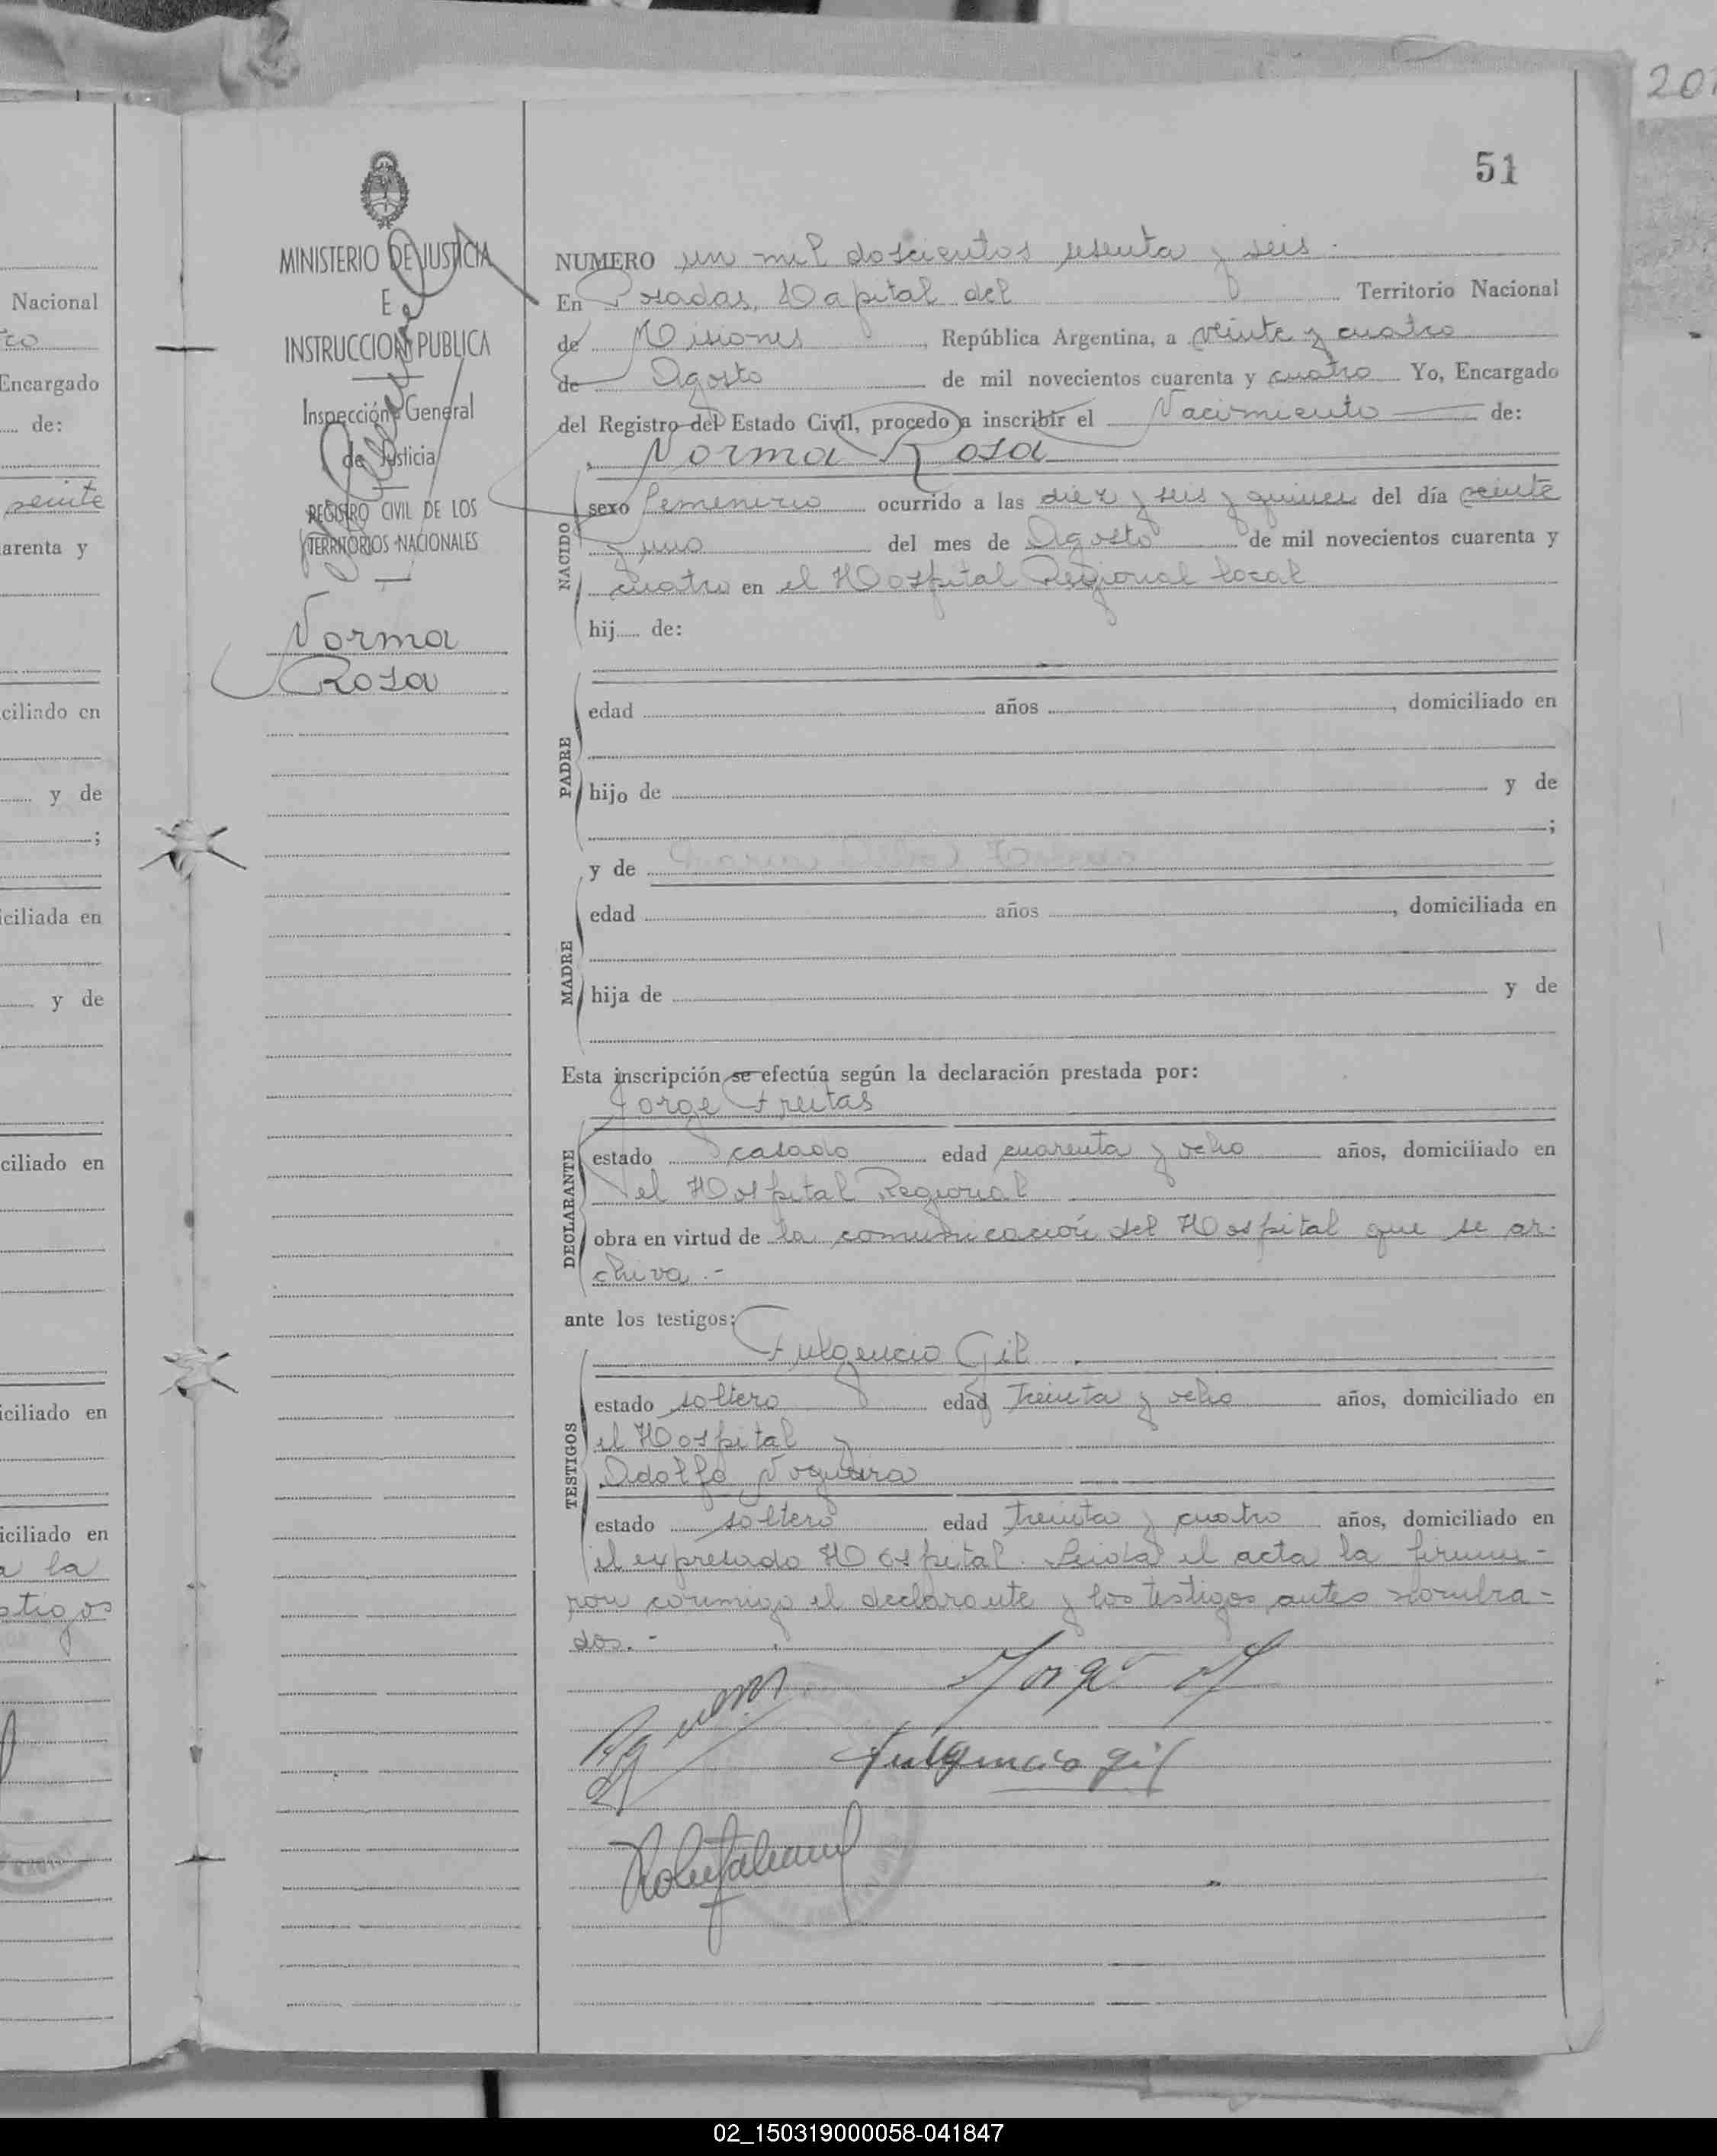 201
51
MINISTERIO DE JUSTICIA
E
INSTRUCCION PUBLICA
Inspección General
de Justicia
REGISTRO CIVIL DE LOS
TERRITORIOS NACIONALES
Norma
Rosa
Nacional
Encargado
de:
veinte
arenta y
ciliado en
y de
;
iciliada en
y de
ciliado en
iciliado en
iciliado en
a la
stigos
NUMERO un mil doscientos sesenta y seis.
En Posadas, Capital del Territorio Nacional
de Misiones, República Argentina, a veinte y cuatro
de Agosto de mil novecientos cuarenta y cuatro Yo, Encargado
del Registro del Estado Civil, procedo a inscribir el Nacimiento de:
Norma Rosa
NACIDO
sexo femenino ocurrido a las diez y seis y quince del día veinte
y uno del mes de Agosto de mil novecientos cuarenta y
cuatro en el Hospital Regional local
hij de:
PADRE
edad años, domiciliado en
hijo de y de
;
y de
MADRE
edad años, domiciliada en
hija de y de
Esta inscripción se efectúa según la declaración prestada por:
Jorge Freitas
DECLARANTE
estado casado edad cuarenta y ocho años, domiciliado en
el Hospital Regional
obra en virtud de la comunicación del Hospital que se ar-
chiva.-
ante los testigos:
Fulgencio Gil
TESTIGOS
estado soltero edad treinta y ocho años, domiciliado en
el Hospital y
Adolfo Noguera
estado soltero edad treinta y cuatro años, domiciliado en
el expresado Hospital. Leida el acta la firma-
ron conmigo el declarante y los testigos antes nombra-
dos.-
Jorge
Fulgencio gil
02_150319000058-041847